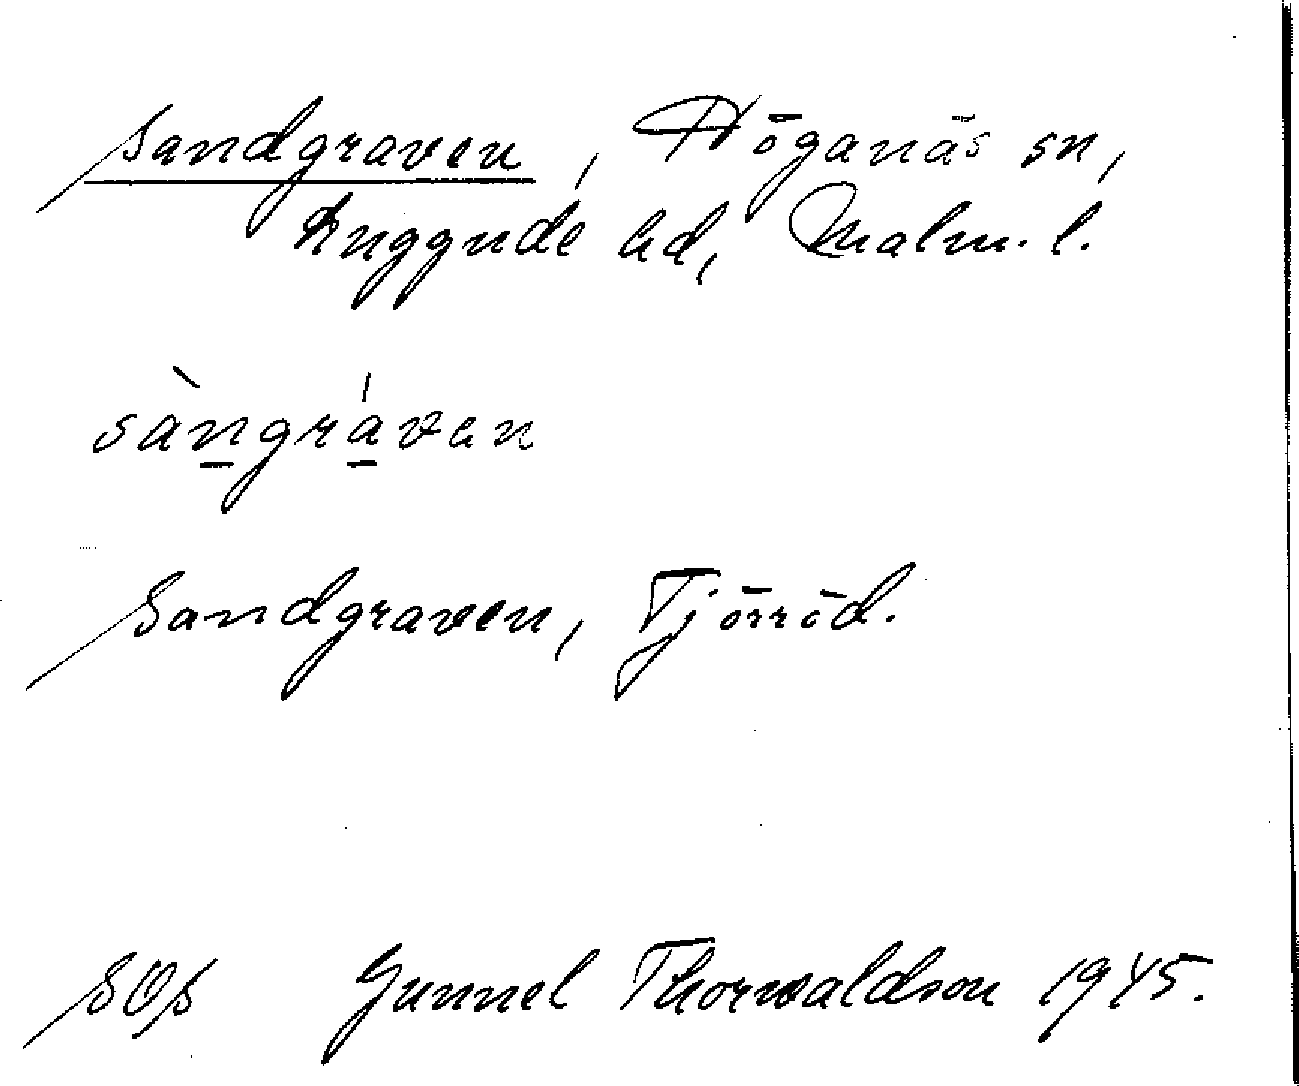 Sandgraven, Höganäs sn,
Luggude hd, Malm. l.
sàn̲grá̲van
Sandgraven, Tjörröd.
Gunnel Thorwaldson 1945.